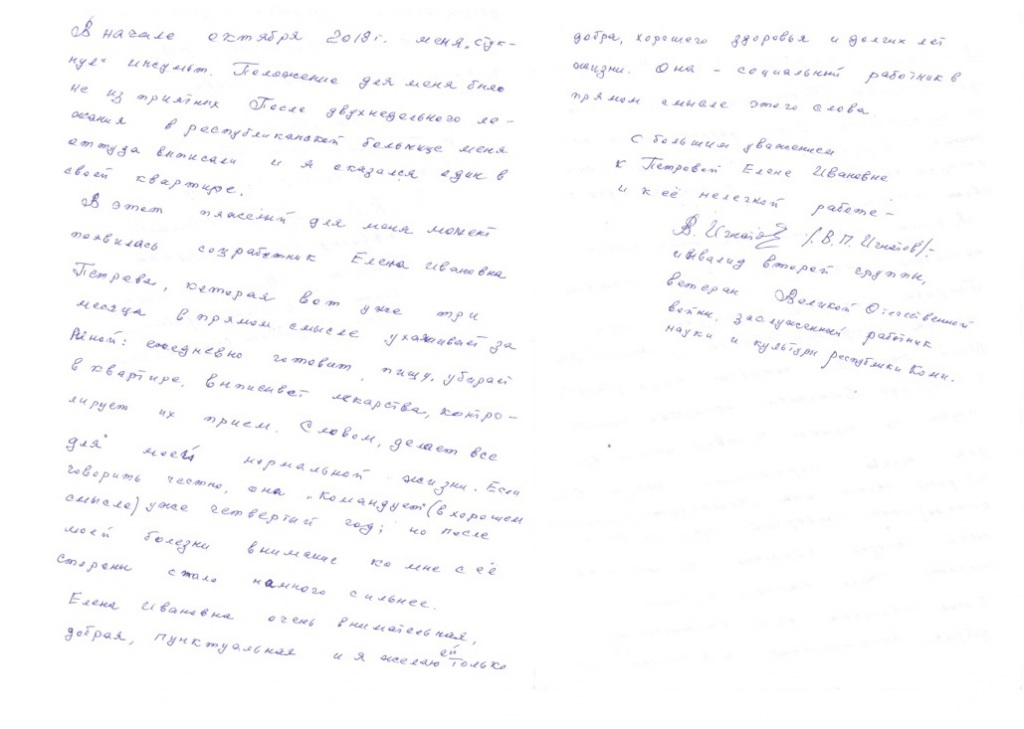 В начале октября 2018г. меня „стук-
нул“ инсульт. Положение для меня было
не из приятных После двухнедельного ле-
жания в республиканской больнице меня
оттуда выписали и я оказался один в
своей квартире.
В этот тяжелый для меня момент
появилась соцработник Елена Ивановна
Петрова, которая вот уже три
месяца в прямом смысле ухаживает за
мной: ежедневно готовит пищу, убирает
в квартире, выписывает лекарства, контро-
лирует их прием. Словом, делает все
для моей нормальной жизни. Если
говорить честно, она „командует“ (в хорошем
смысле) уже четвертый год; но после
моей болезни внимание ко мне с её
стороны стало намного сильнее.
Елена Ивановна очень внимательная,
добрая, пунктуальная и я желаю ей только
добра, хорошего здоровья и долгих лет
жизни. Она – социальный работник в
прямом смысле этого слова.
С большим уважением
к Петровой Елене Ивановне
и к её нелегкой работе –
В. Игнатов /В.П. Игнатов/:
инвалид второй группы,
ветеран Великой Отечественной
войны, заслуженный работник
науки и культуры республики Коми.